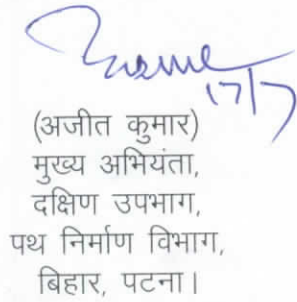 17/7
(अजीत कुमार)
मुख्य अभियंता,
दक्षिण उपभाग,
पथ निर्माण विभाग,
बिहार, पटना।